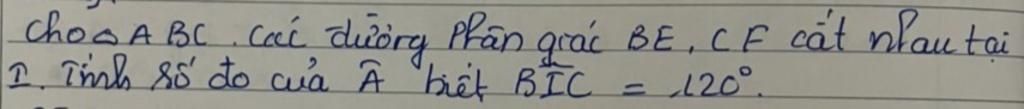 Cho △ABC. Các đường phân giác BE, CF cắt nhau tại
I. Tính số đo của Â biết BÎC = 120°.